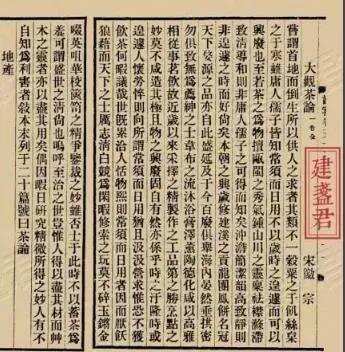 大觀茶論 卷全
宋徽宗
嘗謂首地而倒生所以供人之求者其類不一穀粟之于飢絲枲
之于寒雖庸人孺子皆知常須而日用不以歲時之遑遽而可以
興廢也至若茶之為物擅甌閩之秀氣鍾山川之靈稟祛襟滌滯
致清導和則非庸人孺子之可得而知矣沖澹簡潔韻高致靜則
非遑遽之時而好尚矣本朝之興歲修建溪之貢龍團鳳餅名冠
天下婺源之品亦自此盛延及于今百廢俱舉海內晏然垂拱密
勿俱致無為薦紳之士韋布之流沐浴膏澤薰陶德化咸以高雅
相從事茗飲故近歲以來採擇之精製作之工品第之勝烹點之
妙莫不咸造其極且物之興廢固自有然亦係乎時之汙隆時或
遑遽人懷勞悴則向所謂常須而日用猶且汲汲營求惟恐不獲
飲茶何暇議哉世既累洽人恬物熙則常須而日用者因而厭飫
狼藉而天下之士厲志清白競為閑暇修索之玩莫不碎玉鏘金
啜英咀華校篋笥之精爭鑒裁之妙雖否士于此時不以蓄茶為
羞可謂盛世之清尚也嗚呼至治之世豈惟人得以盡其材而草
木之靈者亦以盡其用矣偶因暇日研究精微所得之妙人有不
自知為利害者敘本末列于二十篇號曰茶論
地產
建盞君